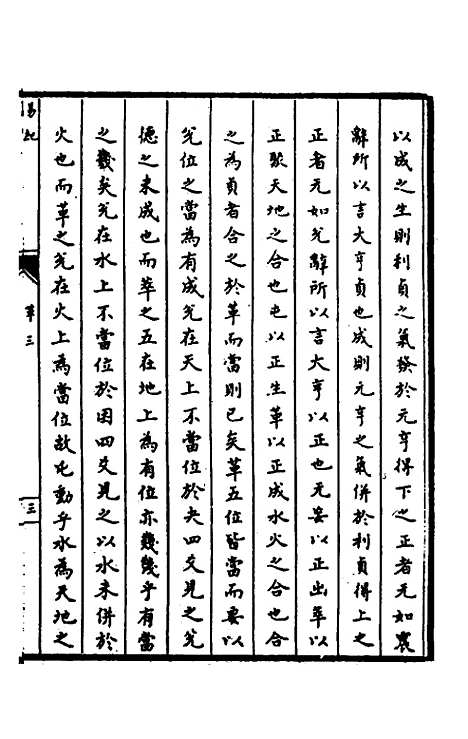 以成之生則利貞之氣發於元亨得下之正者无如震
辭所以言大亨貞也成則元亨之氣併於利貞得上之
正者无如兌辭所以言大亨以正也无妄以正出萃以
正聚天地之合也屯以正生革以正成水火之合也合
之為貞者合之於革而當則已矣革五位皆當而要以
兌位之當為有成兌在天上不當位於夬四爻見之兌
德之未成也而萃之五在地上為有位亦幾幾乎有當
之幾矣兌在水上不當位於困四爻見之以水未併於
火也而革之兌在火上為當位故屯動乎水為天地之
易紀
革三
三